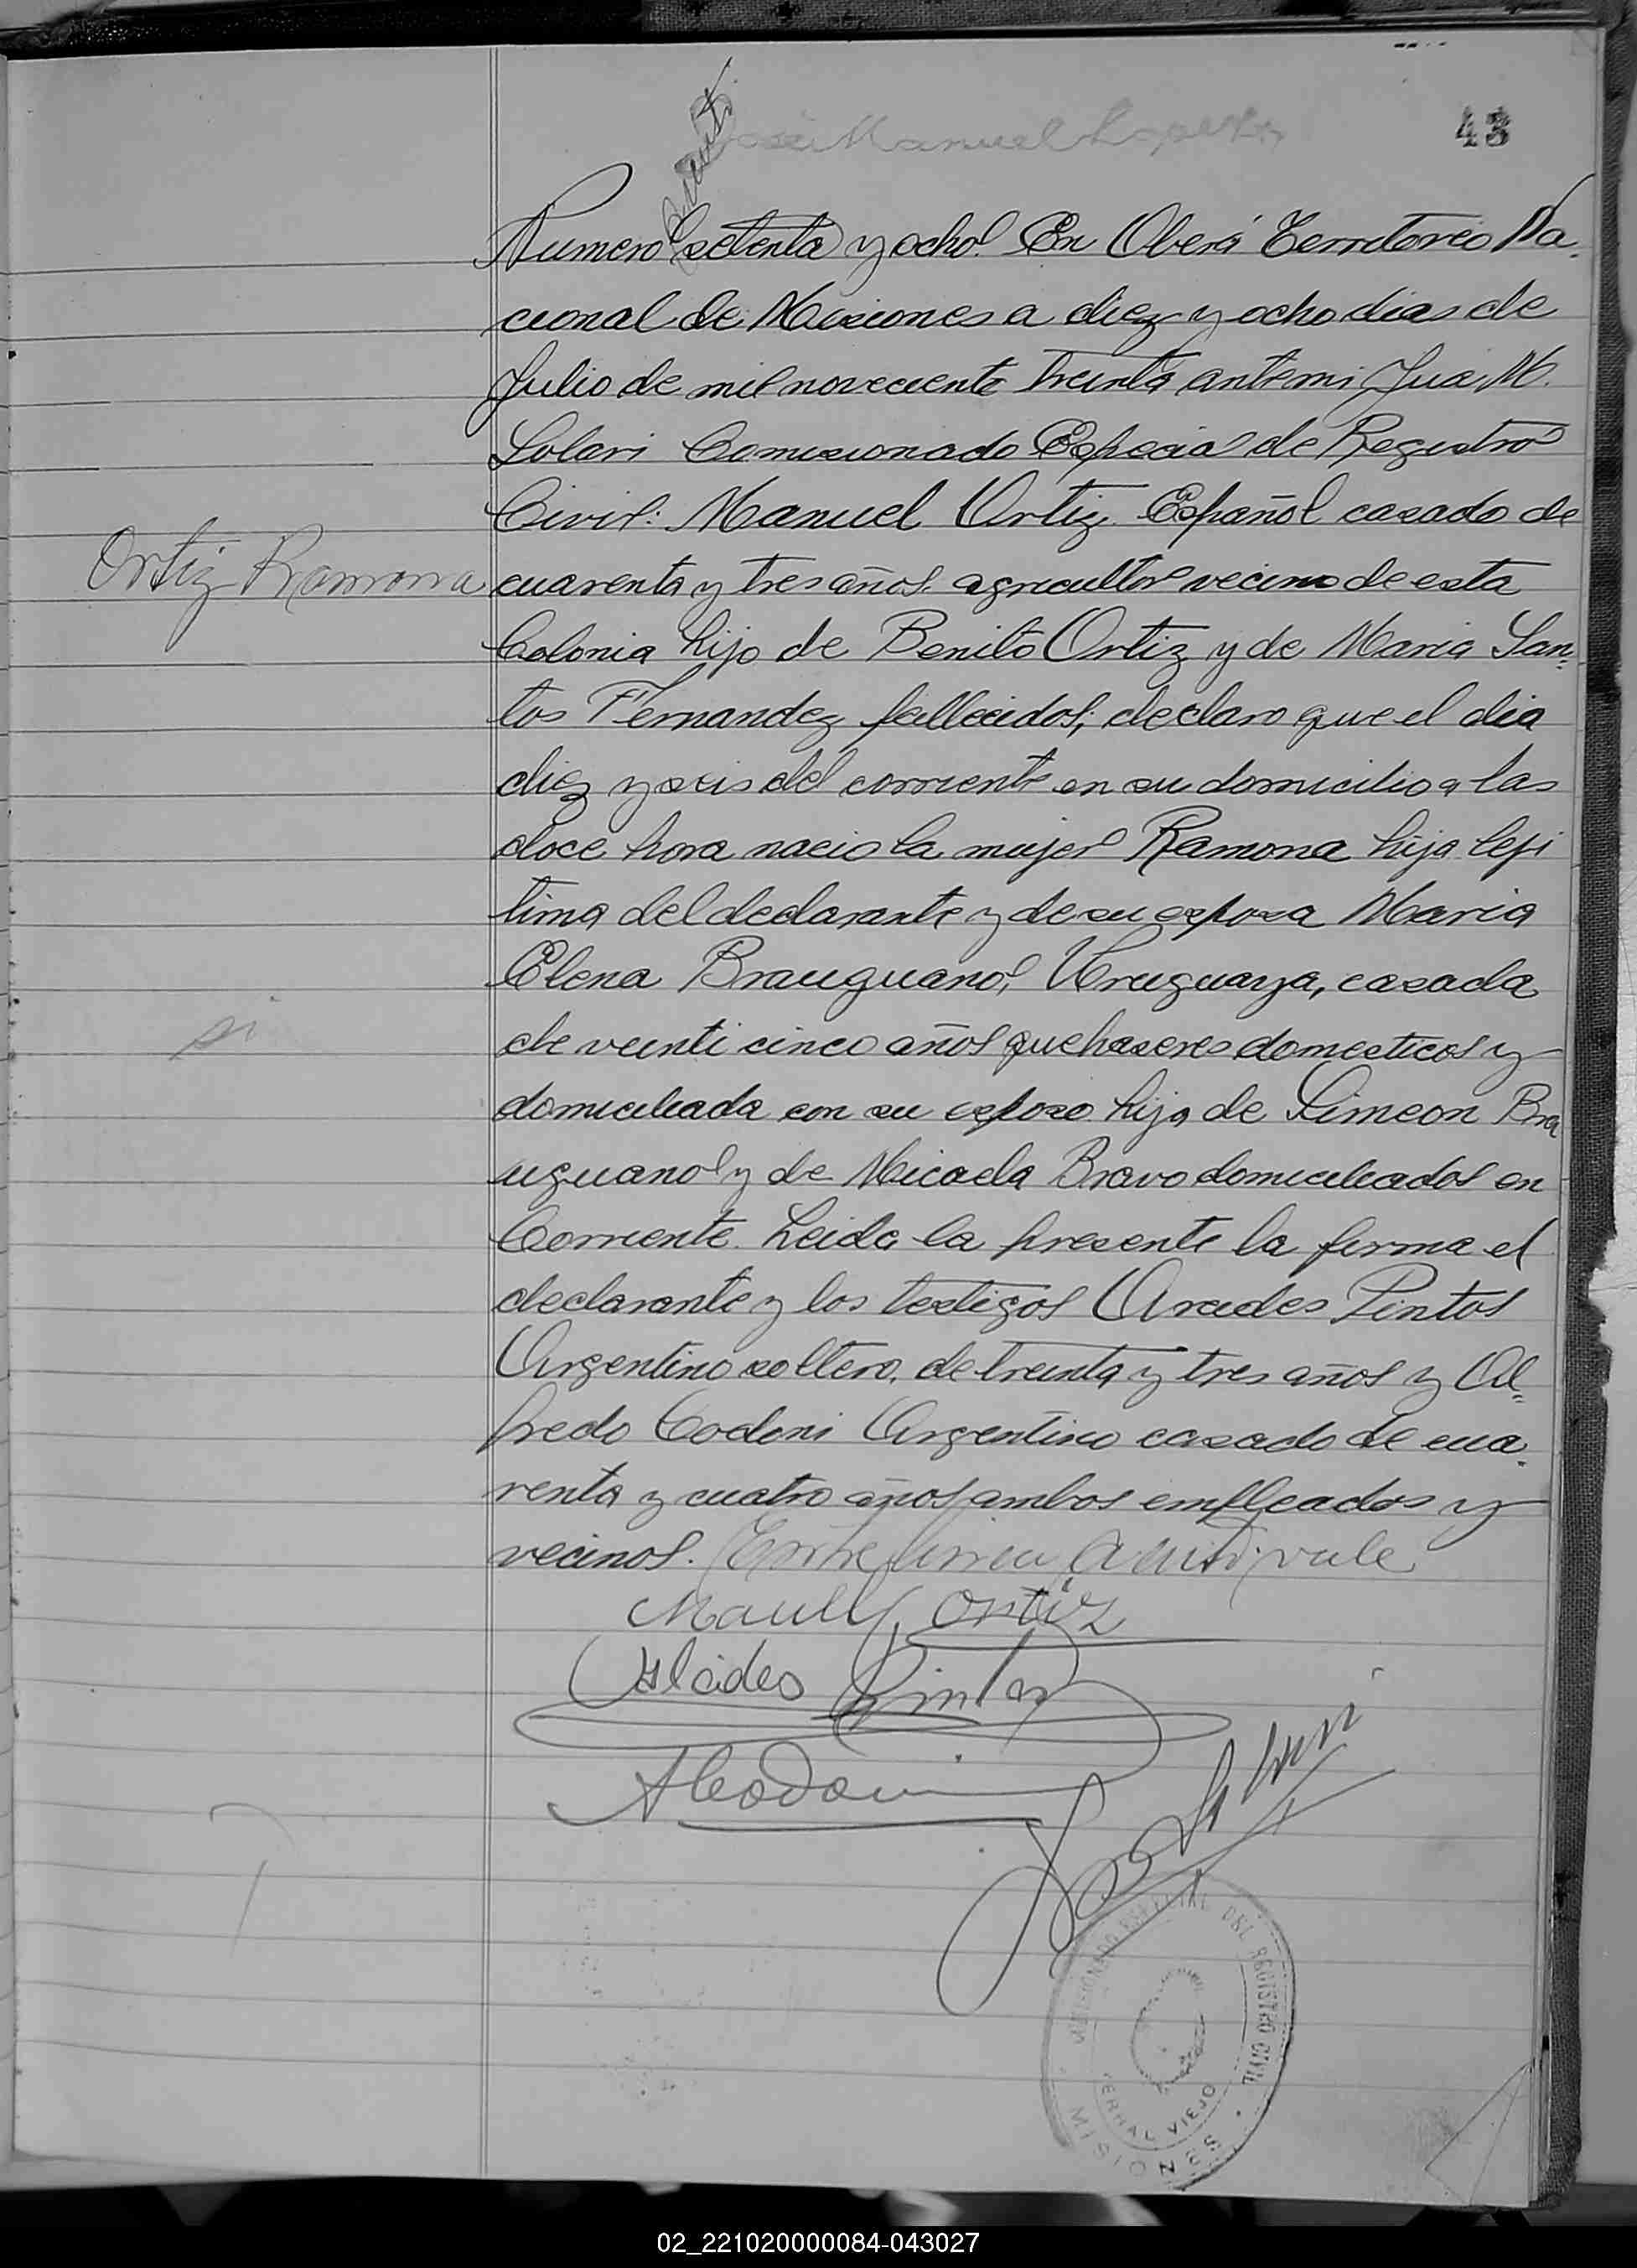 43
José Manuel
Numero setenta y ocho. En Oberá Territoreo Na-
cional de Misiones a diez y ocho dias de
Julio de mil noveciento treinta, ante mi Jua M.
Solari Comisionado Especial de Registro
Civil: Manuel Ortiz, Español casado de
Ortiz Ramona
cuarenta y tres años, agricultor vecino de esta
Colonia hijo de Benito Ortiz y de Maria San-
tos Fernandez fallecidos; declaro que el dia
diez y seis del corriente en su domicilio a las
doce hora nacio la mujer Ramona hija legi
tima del declarante y de su esposa Maria
Elena Brauguano, Uruguaya, casada
de veinti cinco años quehaseres domesticos y
domiciliada con su esposo hija de Simeon Bra
uguano y de Micaela Bravo domiciliados en
Corriente. Leida la presente la firma el
declarante y los testigos Arcides Pintos
Argentino soltero, de treinta y tres años y Al=
fredo Codoni Argentino casado de cua-
renta y cuatro años, ambos empleados y
vecinos. Entre linea vale
Manuel Ortiz
Alcides Pintos
ACodoni
DEL REGISTRO CIVIL
VIEJO
MISIONES
02_221020000084-043027